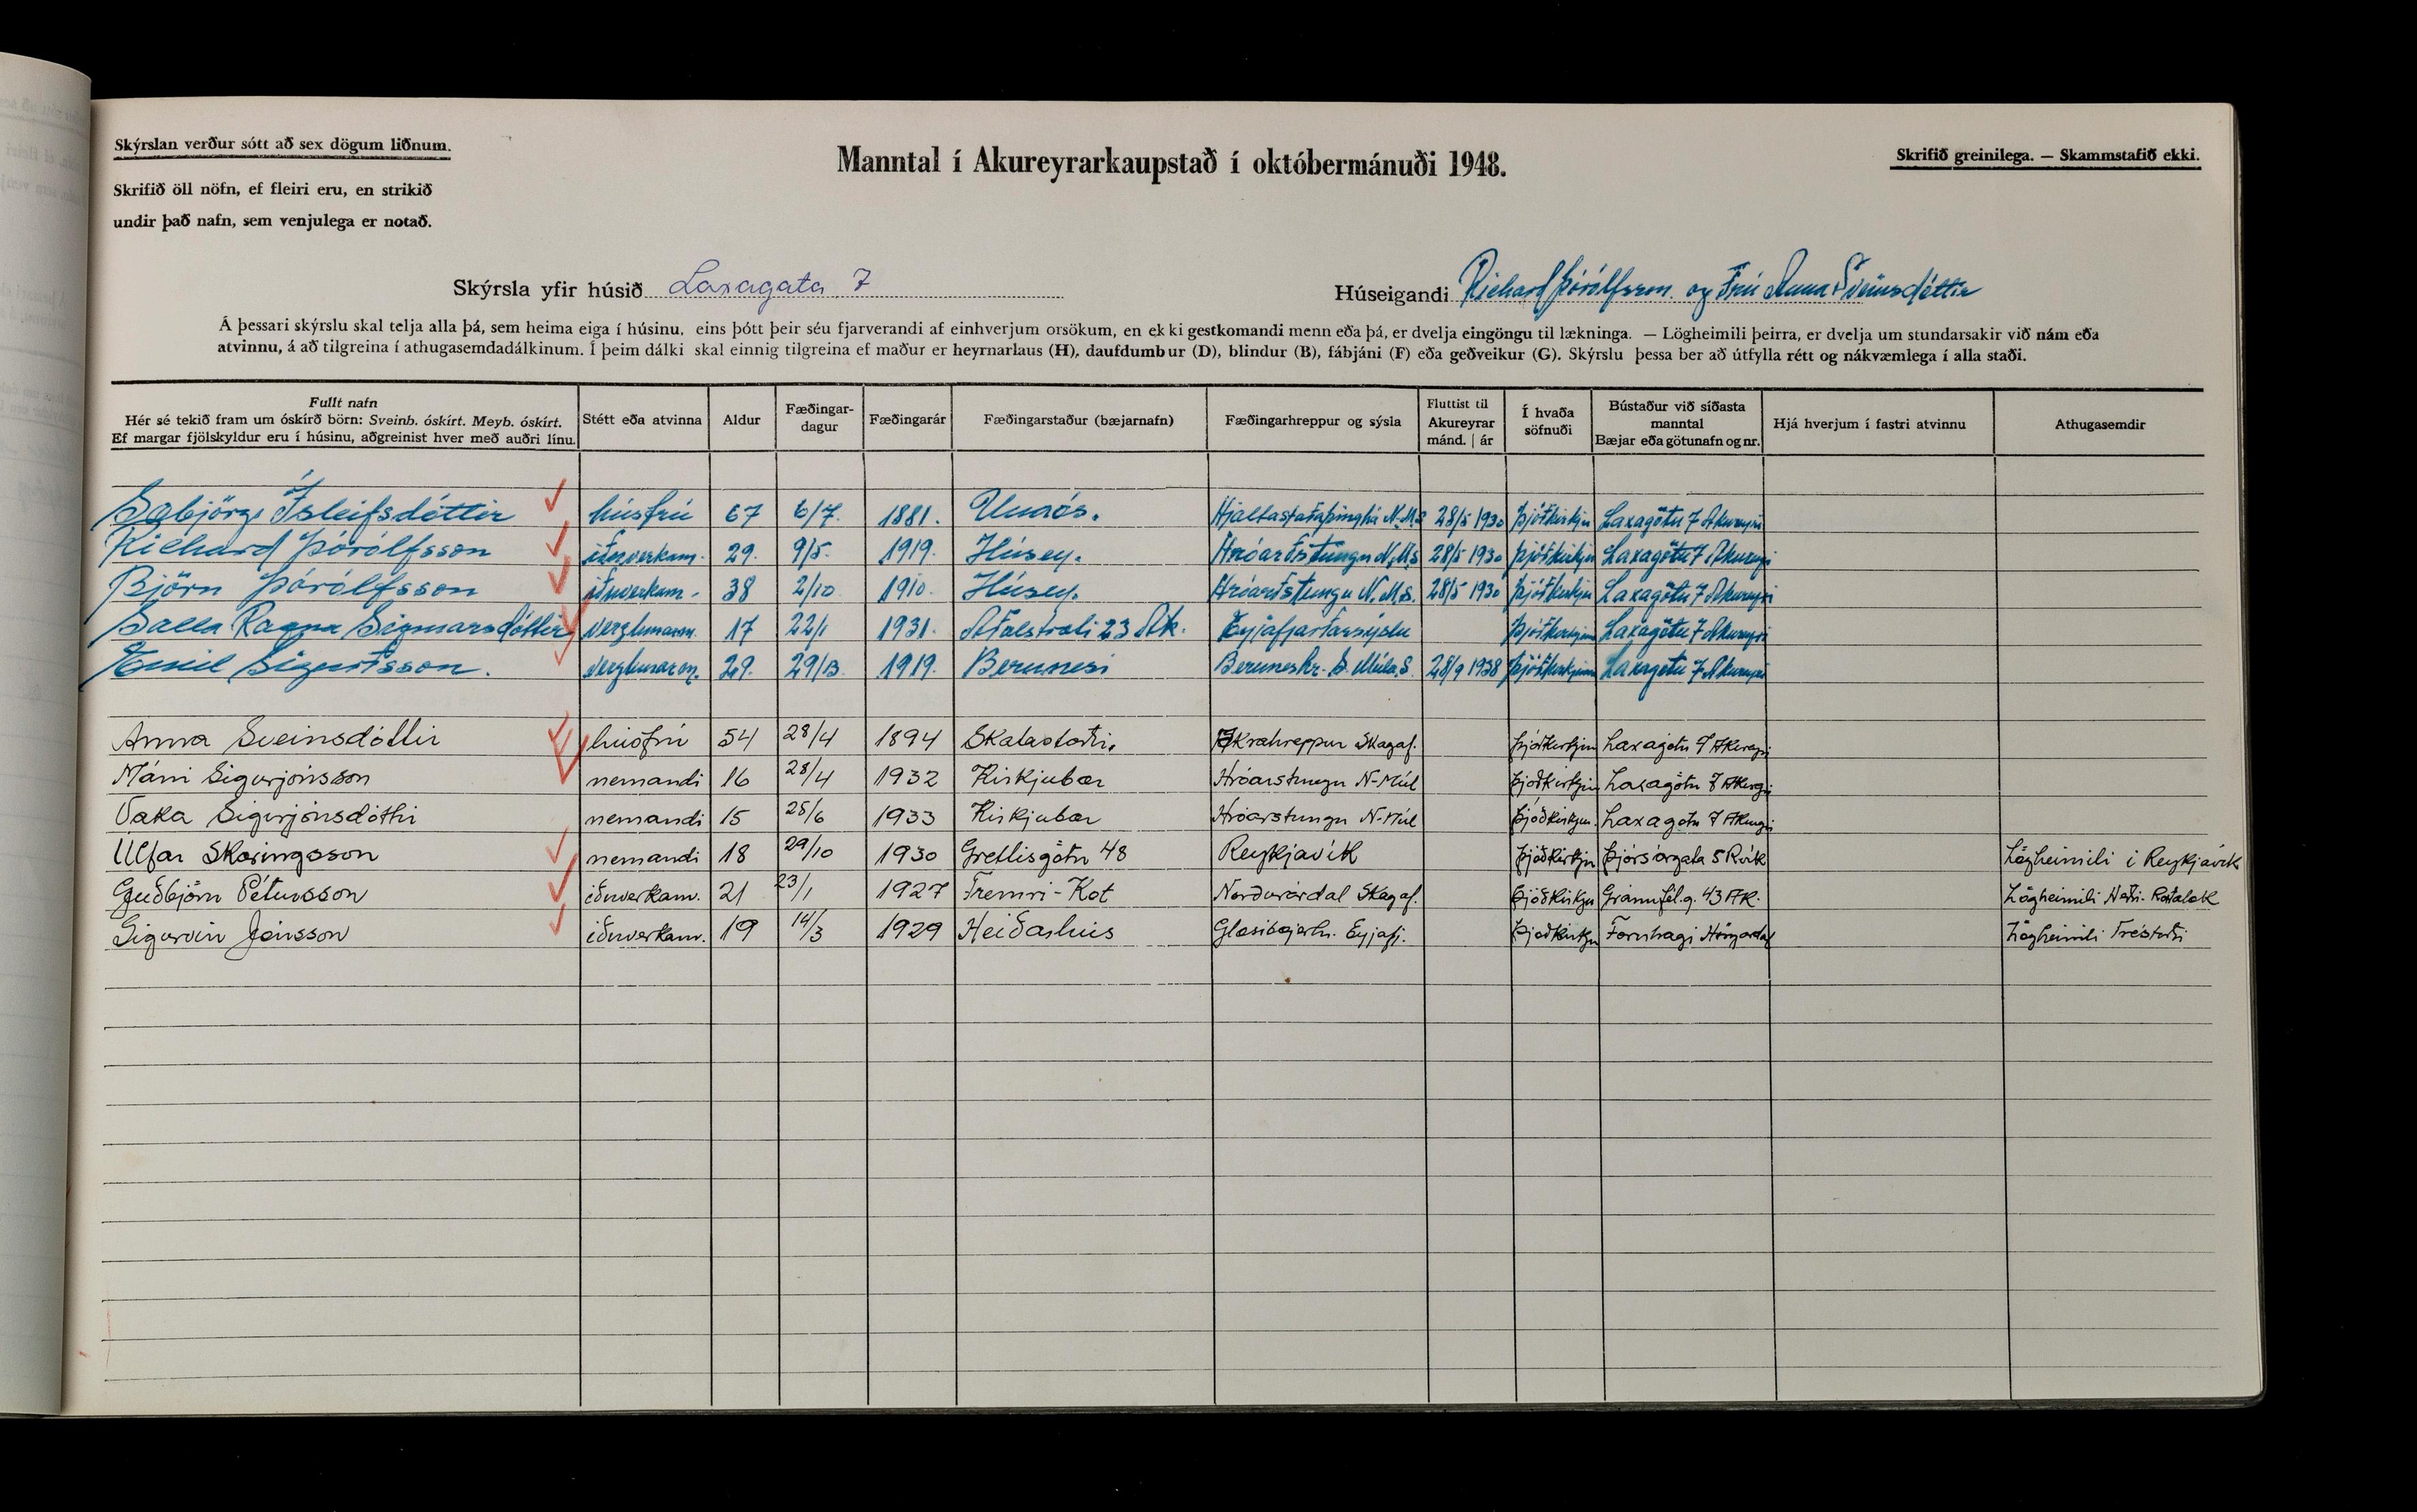 Skýrslan verður sótt að sex dögum liðnum.
Skrifið öll nöfn, ef fleiri eru, en strikið
undir það nafn, sem venjulega er notað.
Manntal í Akureyrarkaupstað í októbermánuði 1948.
Skrifið greinilega. — Skammstafið ekki.
Skýrsla yfir húsið Laxagata 7
Húseigandi Richard Þórólfsson og Frú Anna Sveinsdóttir
Á þessari skýrslu skal telja alla þá, sem heima eiga í húsinu, eins þótt þeir séu fjarverandi af einhverjum orsökum, en ekki gestkomandi menn eða þá, er dvelja eingöngu til lækninga. — Lögheimili þeirra, er dvelja um stundarsakir við nám eða
atvinnu, á að tilgreina í athugasemdadálkinum. Í þeim dálki skal einnig tilgreina ef maður er heyrnarlaus (H), daufdumbur (D), blindur (B), fábjáni (F) eða geðveikur (G). Skýrslu þessa ber að útfylla rétt og nákvæmlega í alla staði.
Fullt nafn
Hér sé tekið fram um óskírð börn: Sveinb. óskírt. Meyb. óskírt.
Ef margar fjölskyldur eru í húsinu, aðgreinist hver með auðri línu.
Stétt eða atvinna
Aldur
Fæðingar-
dagur
Fæðingarár
Fæðingarstaður (bæjarnafn)
Fæðingarhreppur og sýsla
Fluttist til
Akureyrar
mánd. | ár
Í hvaða
söfnuði
Bústaður við síðasta
manntal
Bæjar eða götunafn og nr.
Hjá hverjum í fastri atvinnu
Athugasemdir
Sæbjörg Ísleifsdóttir húsfrú 67 6/7. 1881. Unaós. Hjaltastaðaþinghá N.M.S 28/5 1930 Þjóðkirkju Laxagötu 7 Akureyri
Richard Þórólfsson iðnverkam. 29. 9/5. 1919. Húsey. Hróarstungu N.M.S 28/5 1930 Þjóðkirkju Laxagötu 7 Akureyri
Björn Þórólfsson iðnverkam. 38 2/10 1910. Húsey. Hróarstungu N.M.S. 28/5 1930 Þjóðkirkju Laxagötu 7 Akureyri
Salla Ragna Sigmarsdóttir 17 22/1 1931. Aðalstræti 23 Ak. Eyjafjarðarsýslu Laxagötu 7 Akureyri
Emil Sigurðsson. 29. 1919. Berunesi Beruneshr. S. Múla.S. 28/9 1938 Laxagötu 7 Akureyri
Anna Sveinsdóttir húsfrú 54 28/4 1894 Skatastöðum. Akrahreppur Skagaf. Þjóðkirkjun Laxagötu 7 Akureyri
Máni Sigurjónsson nemandi 16 28/4 1932 Kirkjubær Hróarstungu N-Múl Þjóðkirkjun Laxagötu 7 Akureyri
Vaka Sigurjónsdóttir nemandi 15 25/6 1933 Kirkjubær Hróarstungu N-Múl Þjóðkirkjun Laxagötu 7 Akureyri
Úlfar Skæringsson nemandi 18 29/10 1930 Grettisgötu 48 Reykjavík Þjóðkirkju Þjórsárgata 5 Rvík Lögheimili í Reykjavík
Guðbjörn Pétursson iðnverkam. 21 23/1 1927 Fremri-Kot Norðurárdal Skagaf. Þjóðkirkju Gránufél.g. 43 AK. Lögheimili
Sigurvin Jónsson iðnverkam. 19 14/3 1929 Heiðarhús Glæsibæjarhr. Eyjafj. Þjóðkirkju Fornhagi Hörgárdal Lögheimili